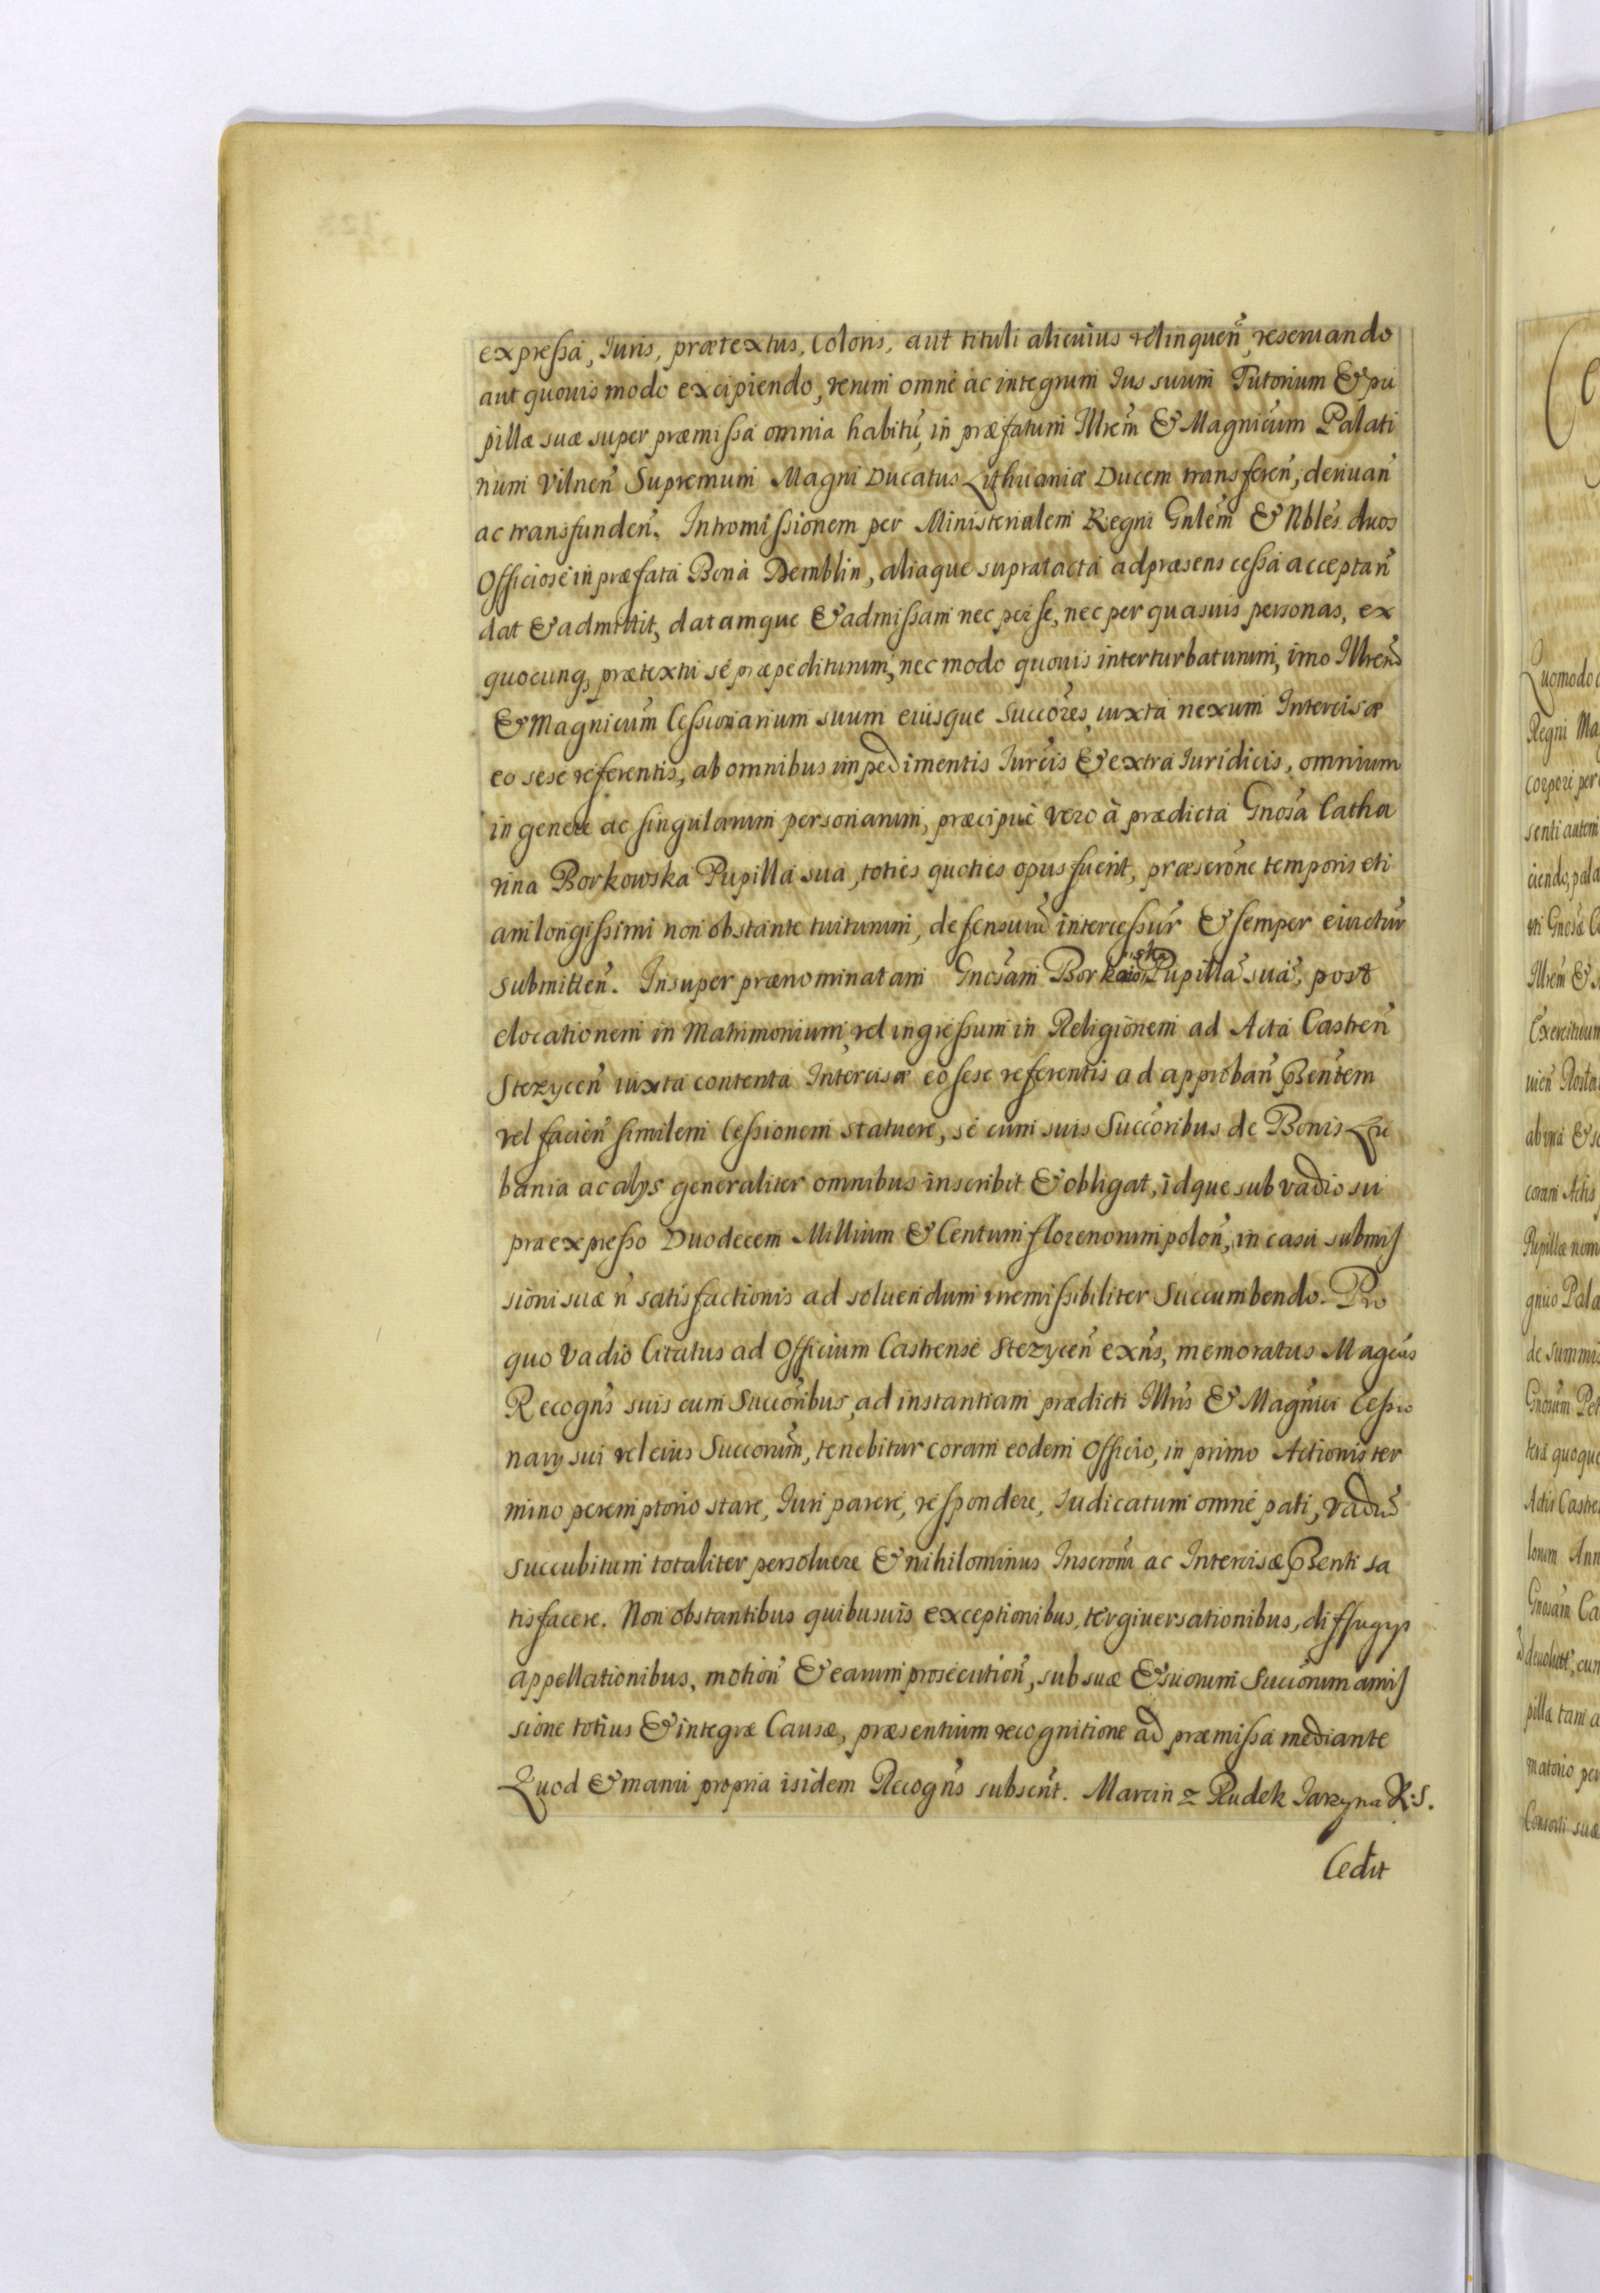 expressa, Iuris, prætextus, Coloris, aut tituli alicuius relinquen̄, reseruando
aut quouis modo excipiendo, verum omne ac integrum Ius suum Tutorium & pu
pillæ suæ super præmissa omnia habitū, in præfatum Illrem̄ & Magnicum̄ Palati
num Vilnen̄ Supremum Magni Ducatus Lithuaniæ Ducem transferen̄, deriuan̄
ac transfunden̄. Intromissionem per Ministerialem Regni Gnlem̄ & Nbles̄ duos
Officiose in præfata Bona Demblin, aliaque supratacta ad præsens cessa acceptan̄
dat & admittit, datamque & admissam nec per se, nec per quasuis personas, ex
quocunq, prætextu se præpediturum, nec modo quouis interturbaturum, imo Illrem̄
& Magnicum̄ Cessionarium suum eiusque Succores̄ iuxta nexum Intercisæ
eo sese referentis, ab omnibus impedimentis Iurcis̄ & extra Iuridicis, omnium
in genere ac singularum personarum, præcipue vero à prædicta Gnosa̅ Catha
rina Borkowska Pupilla sua, toties quoties opus fuerit, præscrone̅ temporis eti
am longissimi non obstante tuiturum, defensurū intercessur̄ & semper euictur̄
submitten̄. Insuper prænominatam Gnosam̄ Borkowską Pupillā suā, post
elocationem in Matrimonium, vel ingressum in Religionem ad Acta Castren̄
Stezycen̄ iuxta contenta Intercisæ eo sese referentis ad approban̄ Pꝛntem̄
vel facien̄ similem Cessionem statuere, se cum suis Succoribus̄ de Bonis Lu
bania ac alys generaliter omnibus inscribit & obligat, idque sub vadio su
præexpresso Duodecem Millium & Centum florenorum polon̄, in casu submis
sioni suæ n̄ satisfactionis ad soluendum irremissibiliter Succumbendo. Pro
quo Vadio Citatus ad Officium Castrense Stezycen̄ exn̄s, memoratus Magcus̄
Recogn̄s suis cum Succoribus̄, ad instantiam prædicti Illris̄ & Magnici̅ Cessio
nary sui vel eius Succorum̄, tenebitur coram eodem Officio, in primo Actionis ter
mino peremptorio stare, Iuri parere, respondere, Iudicatum omne pati, Vadiū
succubitum totaliter persoluere & nihilominus Inscroni̅ ac Intercisæ Pꝛnti̅ sa
tisfacere. Non obstantibus quibusuis exceptionibus, tergiuersationibus, diffugys
appellationibus, motion̄ & earum prosecution̄, sub suæ & suorum Succorum̄ amis
sione totius & integræ Causæ, præsentium recognitione ad præmissa mediante
Quod & manu propria isidem Recogn̄s subscrit̄. Marcin z Rudek Jarzyna R. S.
Cedit